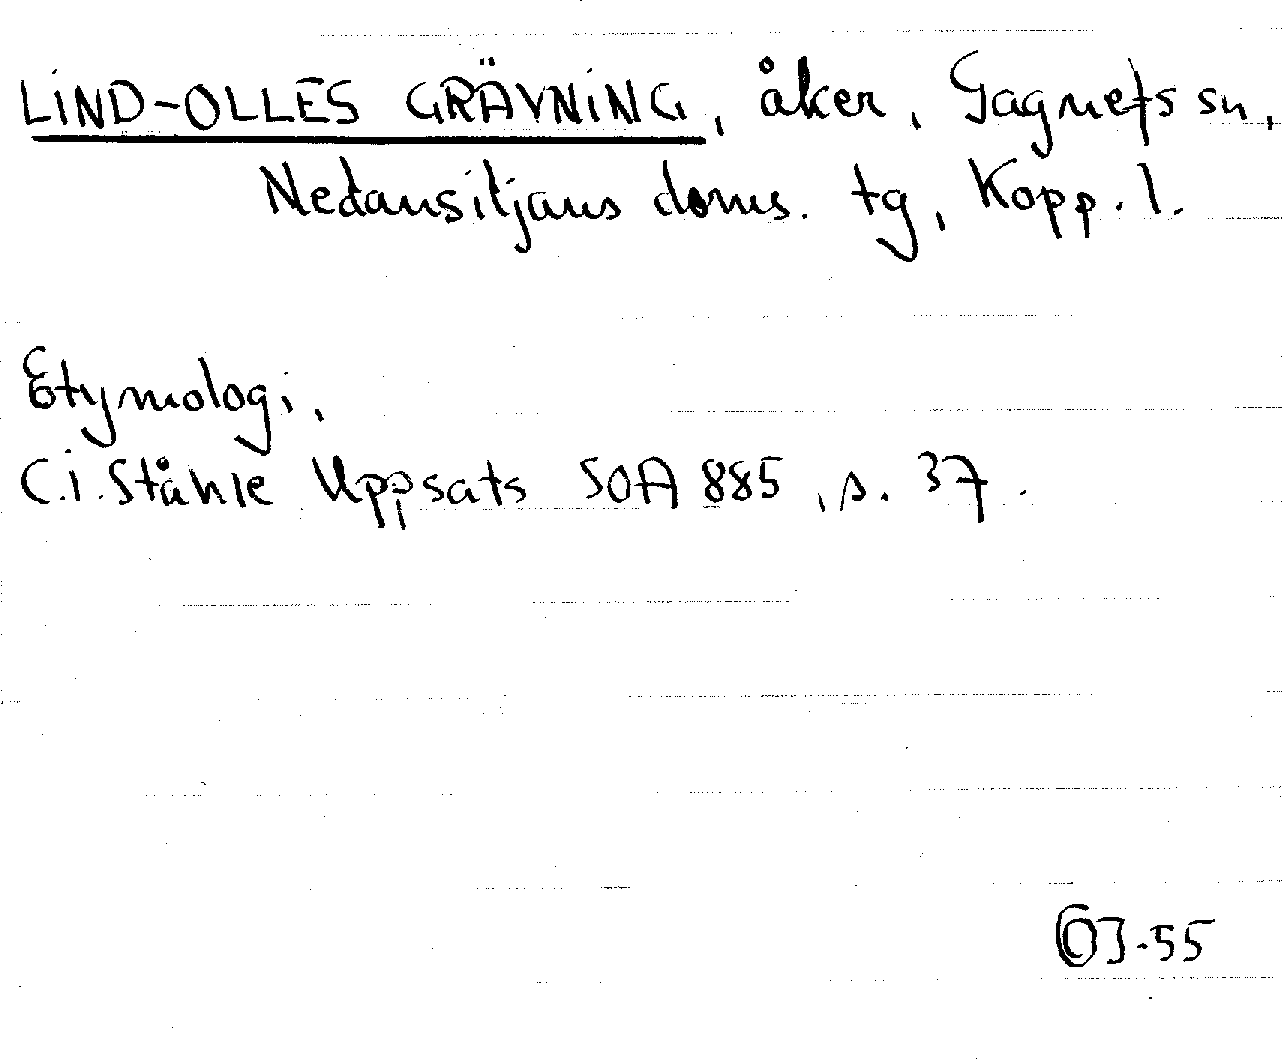 LIND-OLLES GRÄVNING, åker, Gagnefs sn,
Nedansiljans doms. tg, Kopp. l.
Etymologi,
C.I. Ståhle Uppsats SOA 885, s. 37.
OJ-55